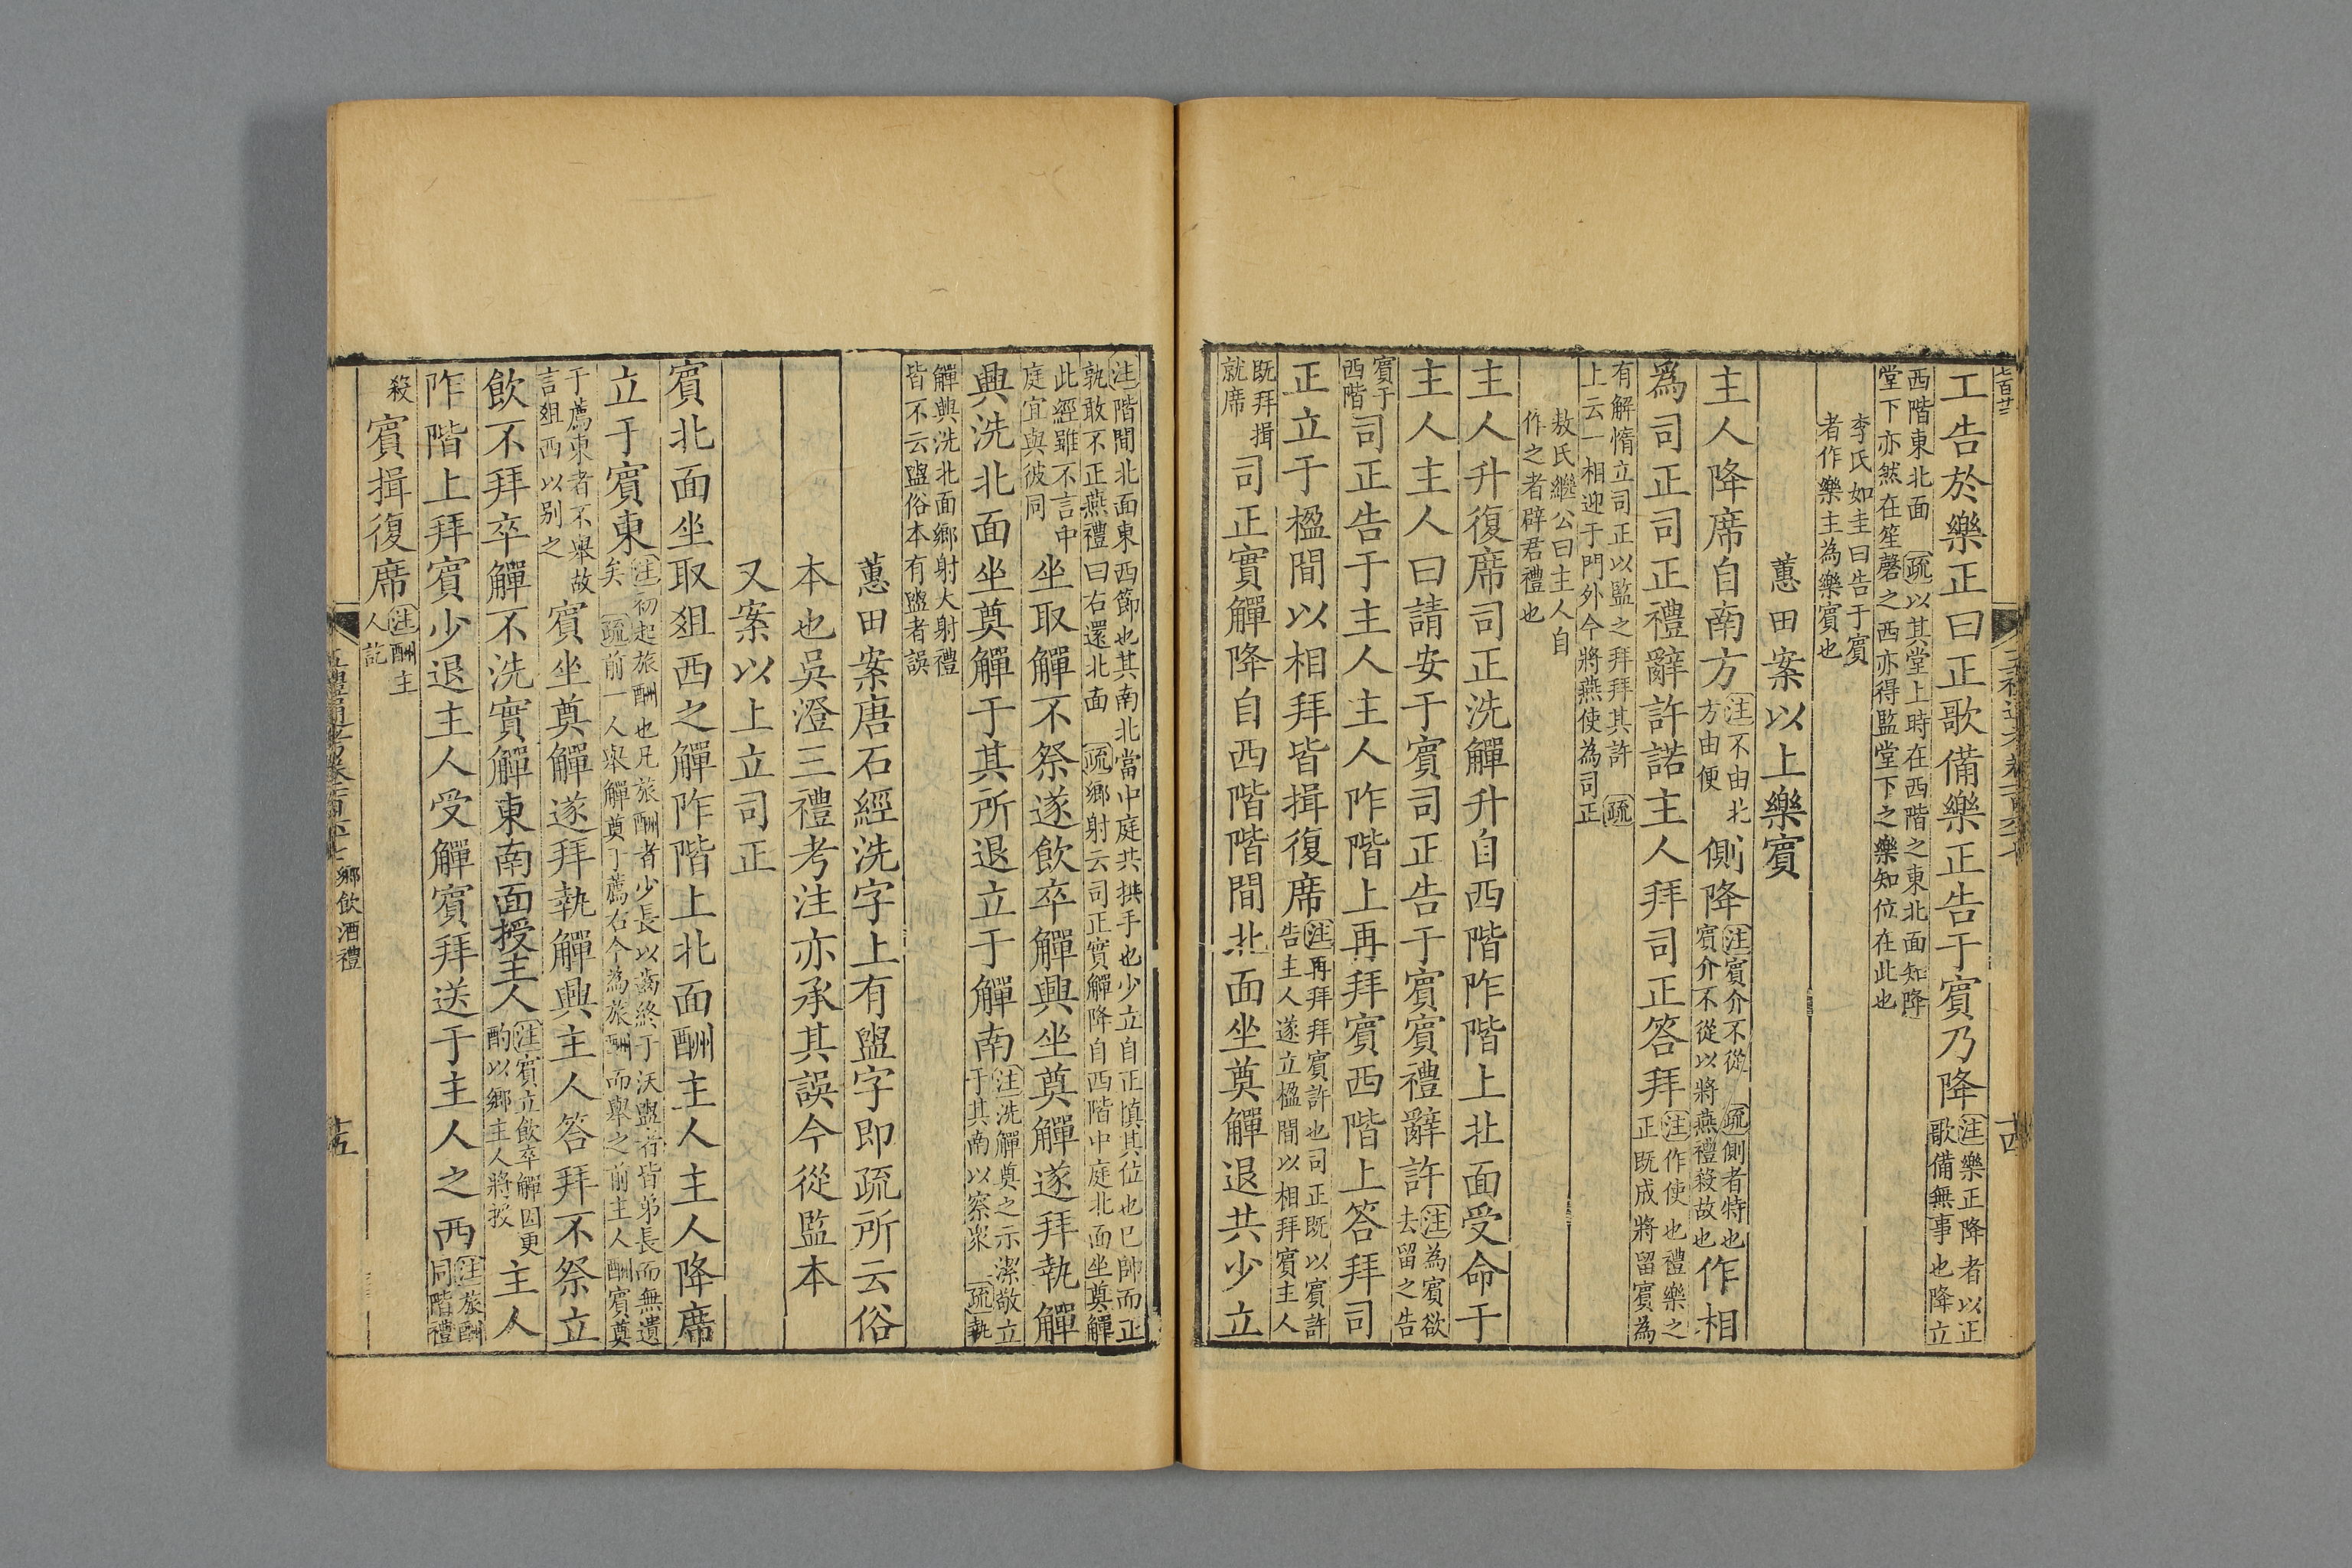 工告於樂正曰正歌備樂正告于賓乃降注樂正降者以正歌備無事也降立
西階東北面疏以其堂上時在西階之東北面知降堂下亦然在笙磬之西亦得監堂下之樂知位在此也
李氏如圭曰告于賓者作樂主為樂賓也
蕙田案以上樂賓
主人降席自南方注不由北方由便側降注賓介不從疏側者特也賓介不從以將燕禮殺故也作相
為司正司正禮辭許諾主人拜司正答拜注作使也禮樂之正既成將留賓為
有解惰立司正以監之拜拜其許疏上云一相迎于門外今將燕使為司正
敖氏繼公曰主人自作之者辟君禮也
主人升復席司正洗觶升自西階阼階上北面受命于
主人主人曰請安于賓司正告于賓賓禮辭許注為賓欲去留之告
賓于西階司正告于主人主人阼階上再拜賓西階上答拜司
正立于楹間以相拜皆揖復席注再拜拜賓許也司正既以賓許告主人遂立楹間以相拜賓主人
既拜揖就席司正實觶降自西階階間北面坐奠觶退共少立
注階間北面東西節也其南北當中庭共拱手也少立自正慎其位也已帥而正孰敢不正燕禮曰右還北面疏鄉射云司正實觶降自西階中庭北面坐奠觶
此經雖不言中庭宜與彼同坐取觶不祭遂飲卒觶興坐奠觶遂拜執觶
興洗北面坐奠觶于其所退立于觶南注洗觶奠之示潔敬立于其南以察衆疏執
觶興洗北面鄉射大射禮皆不云盥俗本有盥者誤
蕙田案唐石經洗字上有盥字即疏所云俗
本也吳澄三禮考注亦承其誤今從監本
又案以上立司正
賓北面坐取俎西之觶阼階上北面酬主人主人降席
立于賓東注初起旅酬也凡旅酬者少長以齒終于沃盥者皆弟長而無遺矣疏前一人舉觶奠于薦右今為旅酬而舉之前主人酬賓奠
于薦東者不舉故言俎西以别之賓坐奠觶遂拜執觶興主人答拜不祭立
飲不拜卒觶不洗實觶東南面授主人注賓立飲卒觶因更酌以鄉主人將授主人
阼階上拜賓少退主人受觶賓拜送于主人之西注旅酬同階禮
殺賓揖復席注酬主人訖
鄉飲酒禮
十五